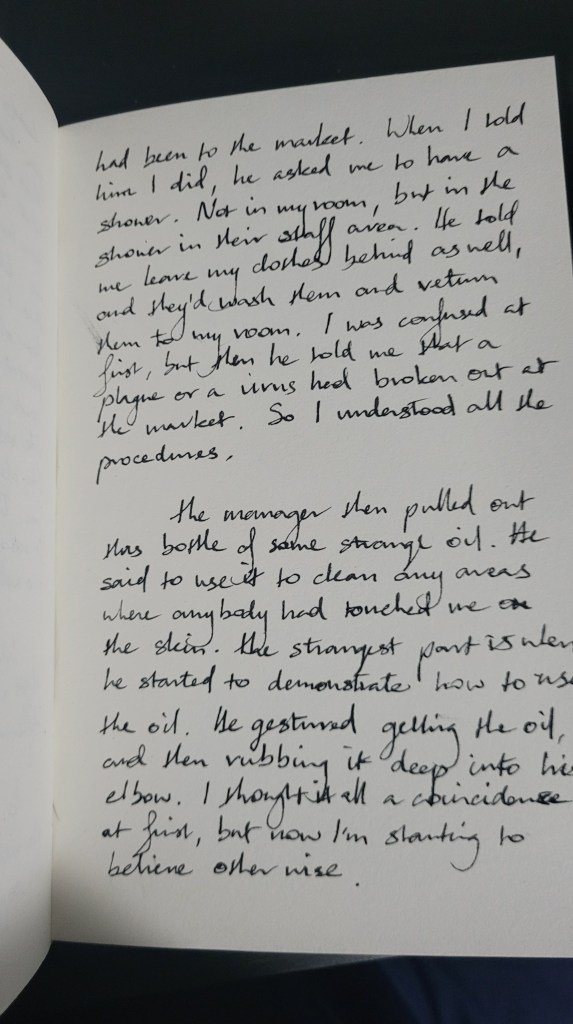 had been to the market. When I told
him I did, he asked me to have a
shower. Not in my room, but in the
shower in their staff area. He told
me leave my clothes behind as well,
and they'd wash them and return
them to my room. I was confused at
first, but then he told me that a
plague or a virus had broken out at
the market. So I understood all the
procedures.
The manager then pulled out
this bottle of some strange oil. He
said to use it to clean any areas
where anybody had touched me on
the skin. The strangest part is when
he started to demonstrate how to use
the oil. He gestured getting the oil,
and then rubbing it deep into his
elbow. I thought it all a coincidence
at first, but now I'm starting to
believe otherwise.